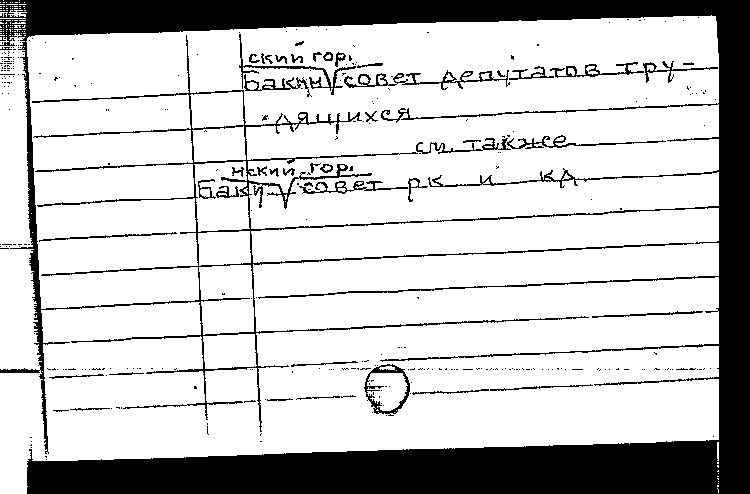 ский гор.
Бакин√совет депутатов тру-
дящихся
см. также
нский гор.
Баки-√совет рк и кд